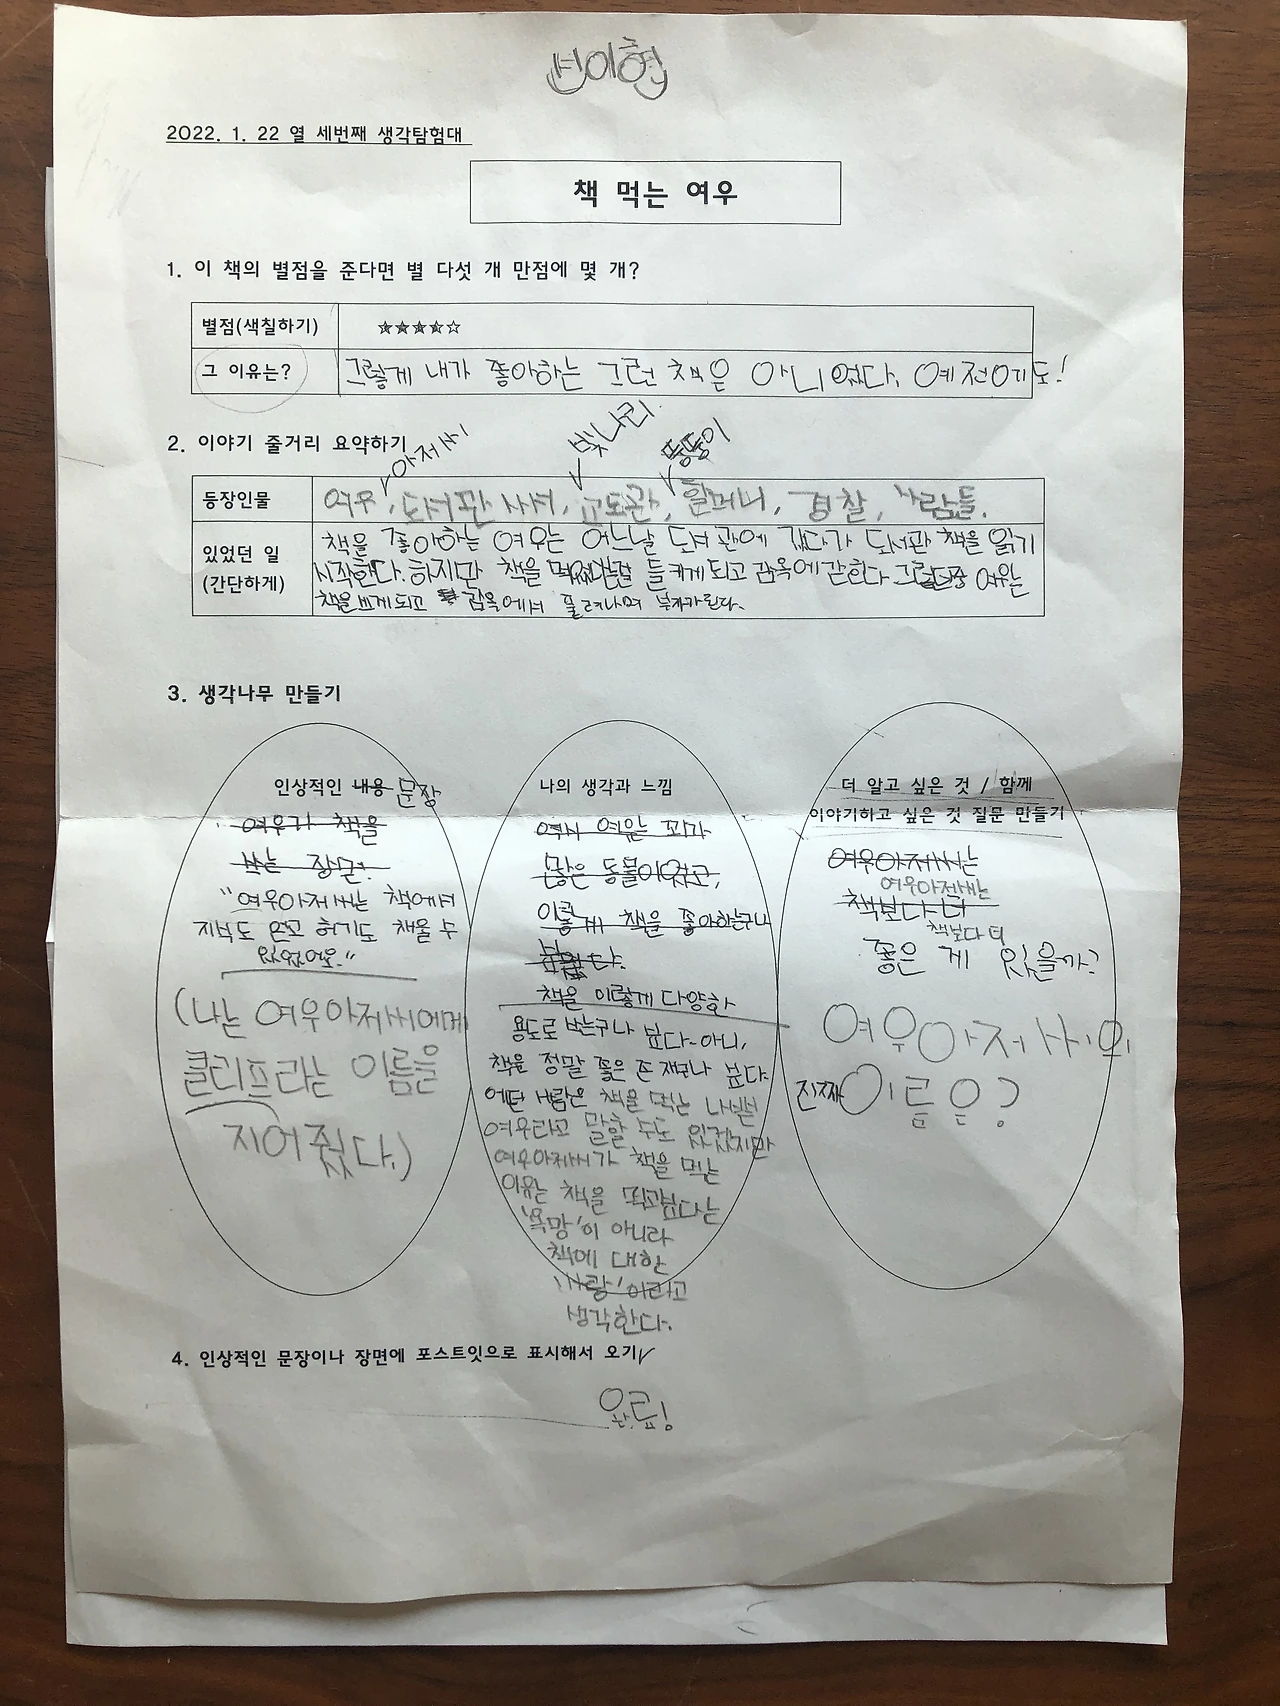 선이현
2022. 1. 22 열 세번째 생각탐험대
책 먹는 여우
1. 이 책의 별점을 준다면 별 다섯 개 만점에 몇 개?
별점(색칠하기) ★★★★☆
그 이유는? 그렇게 내가 좋아하는 그런 책은 아니었다. 예전에도!
2. 이야기 줄거리 요약하기
아저씨 빛나리 뚱뚱이
등장인물 여우, 도서관 사서, 교도관, 할머니, 경찰, 사람들.
있었던 일 (간단하게) 책을 좋아하는 여우는 어느날 도서관에 갔다가 도서관 책을 읽기
시작한다. 하지만 책을 먹었다는걸 들키게 되고 감옥에 갇힌다 그러던중 여우는
책을 쓰게 되고 감옥에서 풀려나며 부자가 된다.
3. 생각나무 만들기
인상적인 내용 문장
여우가 책을
먹는 장면.
"여우아저씨는 책에서
지식도 얻고 허기도 채울 수
있었어요."
(나는 여우아저씨에게
클리프라는 이름을
지어줬다.)
나의 생각과 느낌
역시 여우는 꾀가
많은 동물이었고,
이렇게 책을 좋아하는구나
싶었다.
책을 이렇게 다양한
용도로 쓰는구나 싶다~아니,
책을 정말 좋은 존재구나 싶다.
어떤 사람은 책을 먹는 나쁜
여우라고 말할 수도 있겠지만
여우아저씨가 책을 먹는
이유는 책을 먹고싶다는
'욕망'이 아니라
책에 대한
'사랑'이라고
생각한다.
더 알고 싶은 것 / 함께
이야기하고 싶은 것 질문 만들기
여우아저씨는
여우아저씨는
책보다 더
책보다 더
좋은 게 있을까?
여우아저씨의
진짜 이름은?
4. 인상적인 문장이나 장면에 포스트잇으로 표시해서 오기
완료!